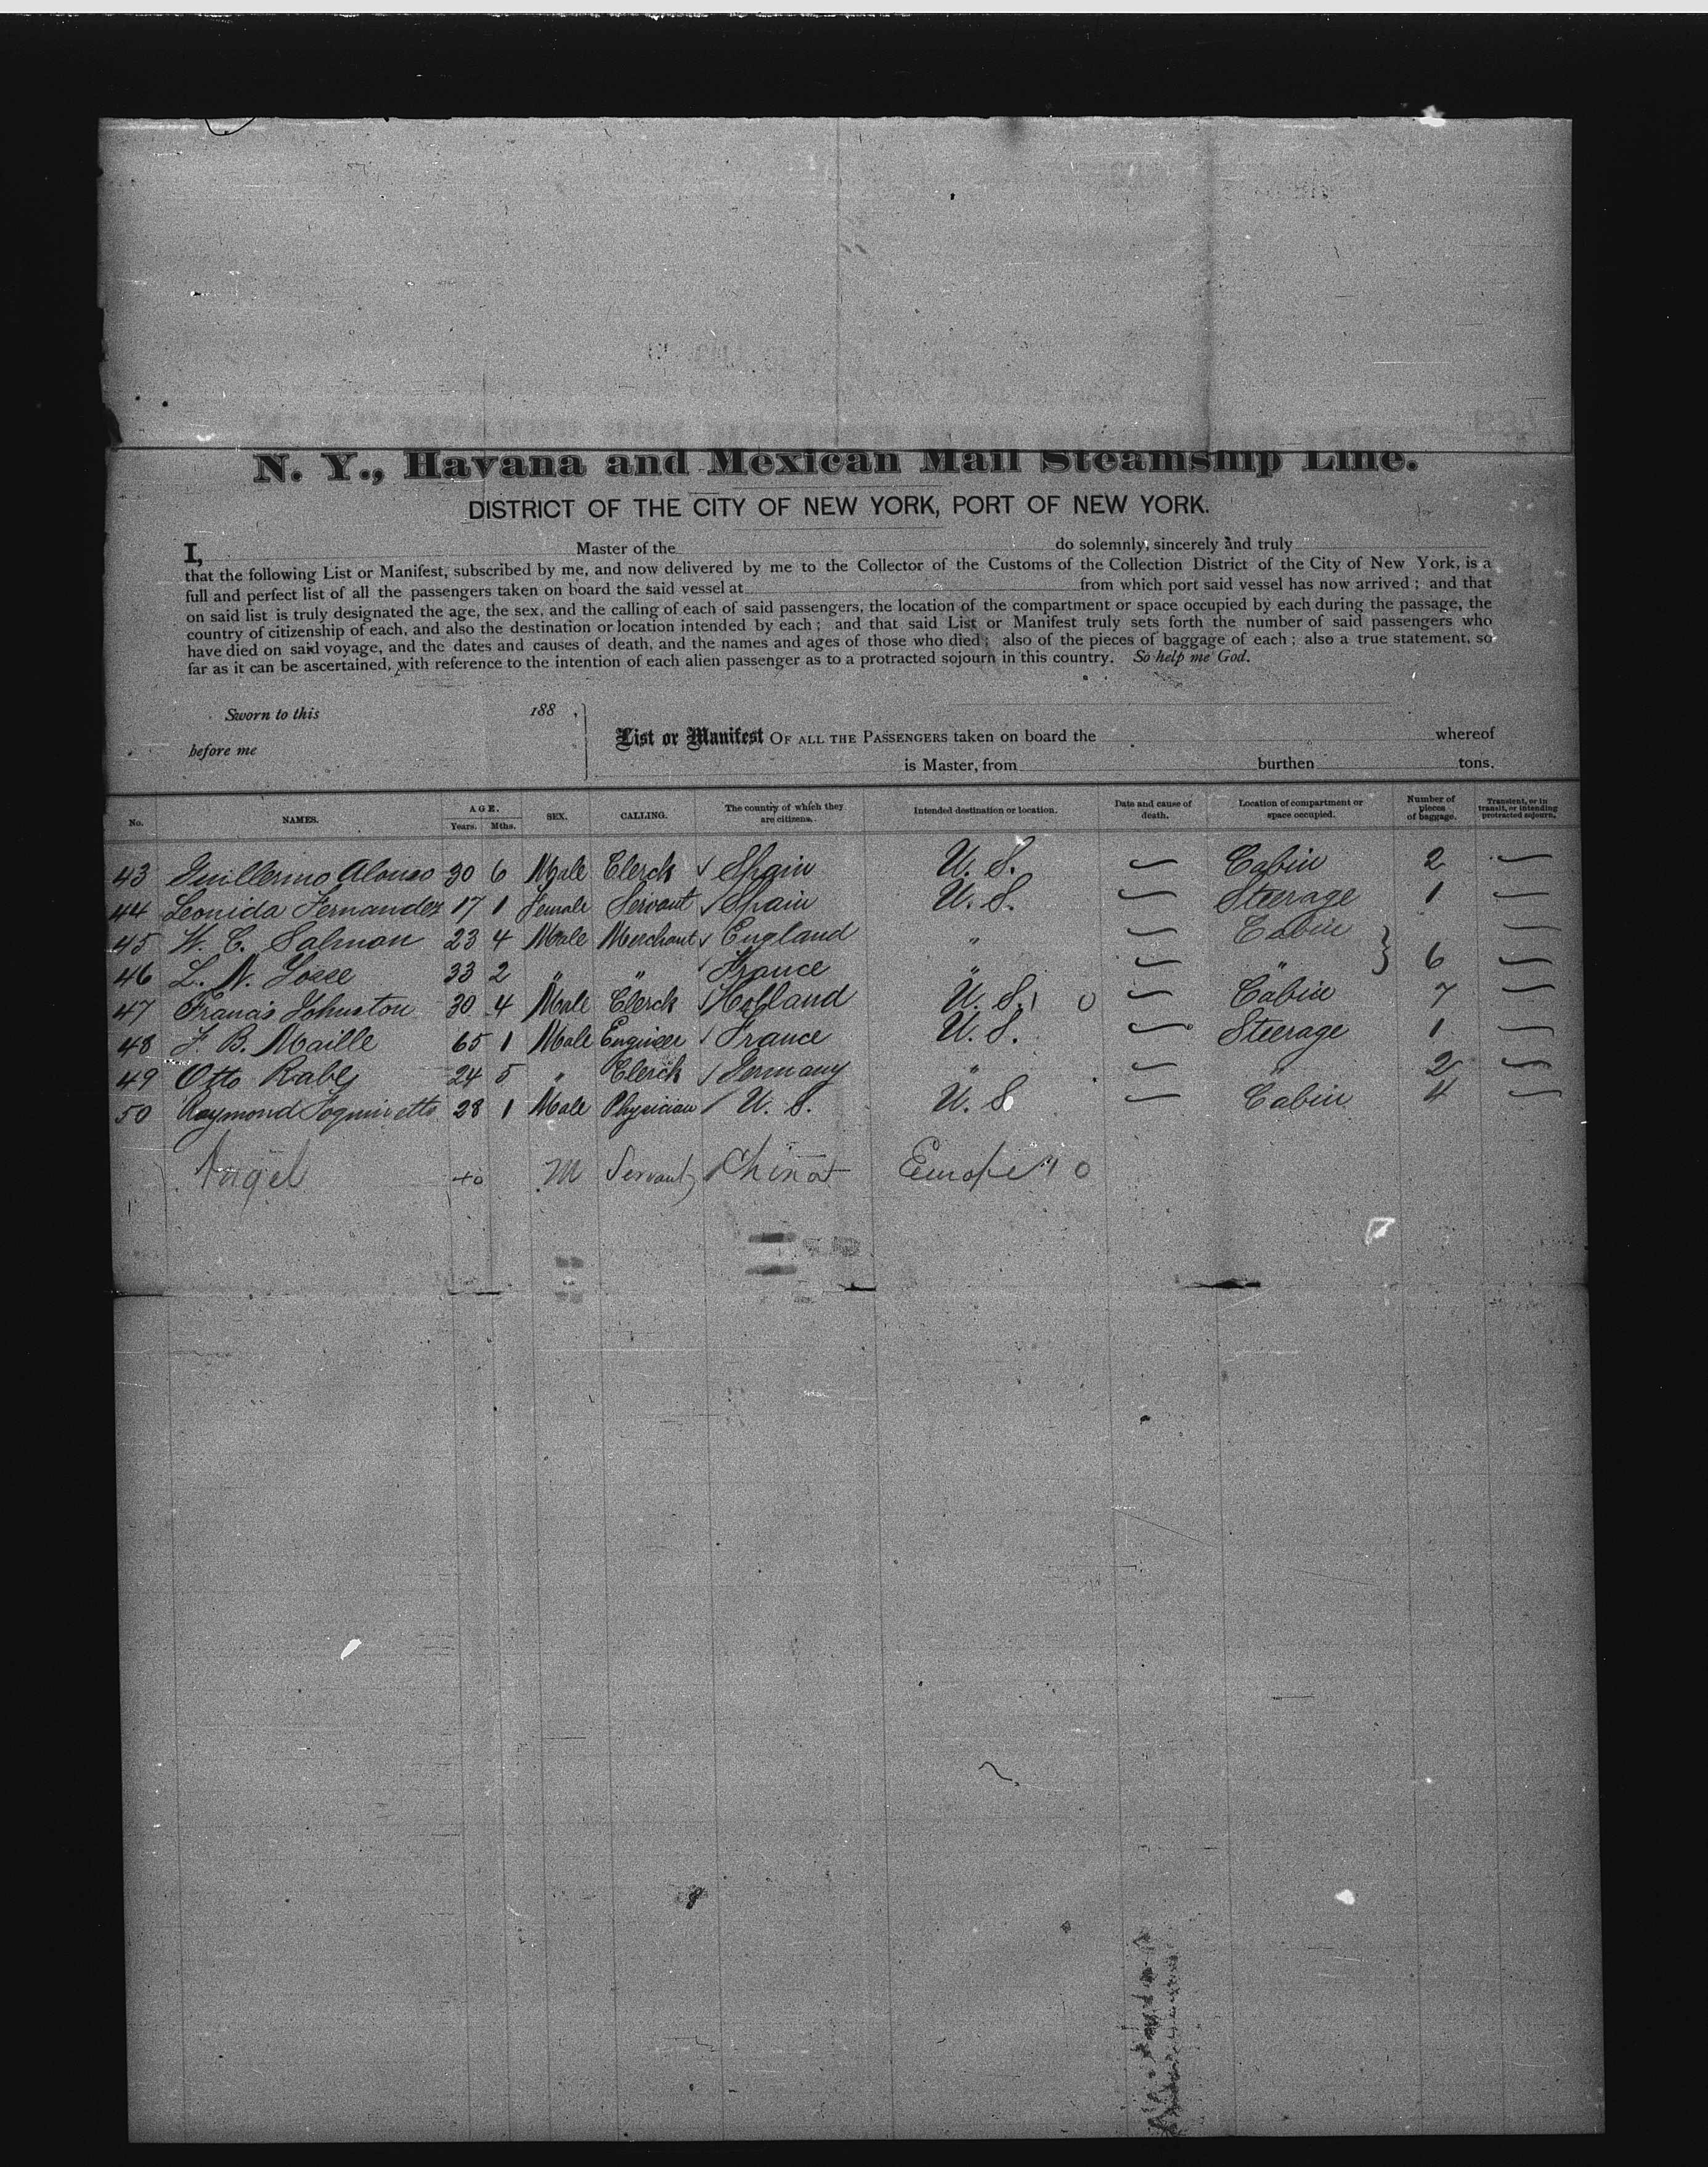 N. Y., Havana and Mexican Mail Steamship Line.
DISTRICT OF THE CITY OF NEW YORK, PORT OF NEW YORK.
I, Master of the do solemnly, sincerely and truly
that the following List or Manifest, subscribed by me, and now delivered by me to the Collector of the Customs of the Collection District of the City of New York, is a
full and perfect list of all the passengers taken on board the said vessel at from which port said vessel has now arrived; and that
on said list is truly designated the age, the sex, and the calling of each of said passengers, the location of the compartment or space occupied by each during the passage, the
country of citizenship of each, and also the destination or location intended by each; and that said List or Manifest truly sets forth the number of said passengers who
have died on said voyage, and the dates and causes of death, and the names and ages of those who died; also of the pieces of baggage of each; also a true statement, so
far as it can be ascertained, with reference to the intention of each alien passenger as to a protracted sojourn in this country. So help me God.
Sworn to this 188 .
before me
List or Manifest OF ALL THE PASSENGERS taken on board the whereof
is Master, from burthen tons.
No. NAMES. AGE. Years. Mths. SEX. CALLING. The country of which they are citizens. Intended destination or location. Date and cause of death. Location of compartment or space occupied. Number of pieces of baggage. Transient, or in transit, or intending protracted sojourn.
43 Guillermo Alonso 30 6 Male Clerck Spain U. S. — Cabin 2 —
44 Leonida Fernandez 17 1 Female Servant Spain U. S. — Steerage 1 —
45 W. C. Salmon 23 4 Male Merchant England " — Cabin —
46 L. N. 33 2 " " France " — " 6 —
47 Francis Johnston 30 4 Male Clerck Holland U. S. — Cabin 7 —
48 F. B. Maille 65 1 Male Engineer France U. S. — Steerage 1 —
49 Otto 24 5 " Clerck Germany " — " 2 —
50 Raymond 28 1 Male Physician U. S. U. S. — Cabin 4 —
Angel 40 M Servant China Europe